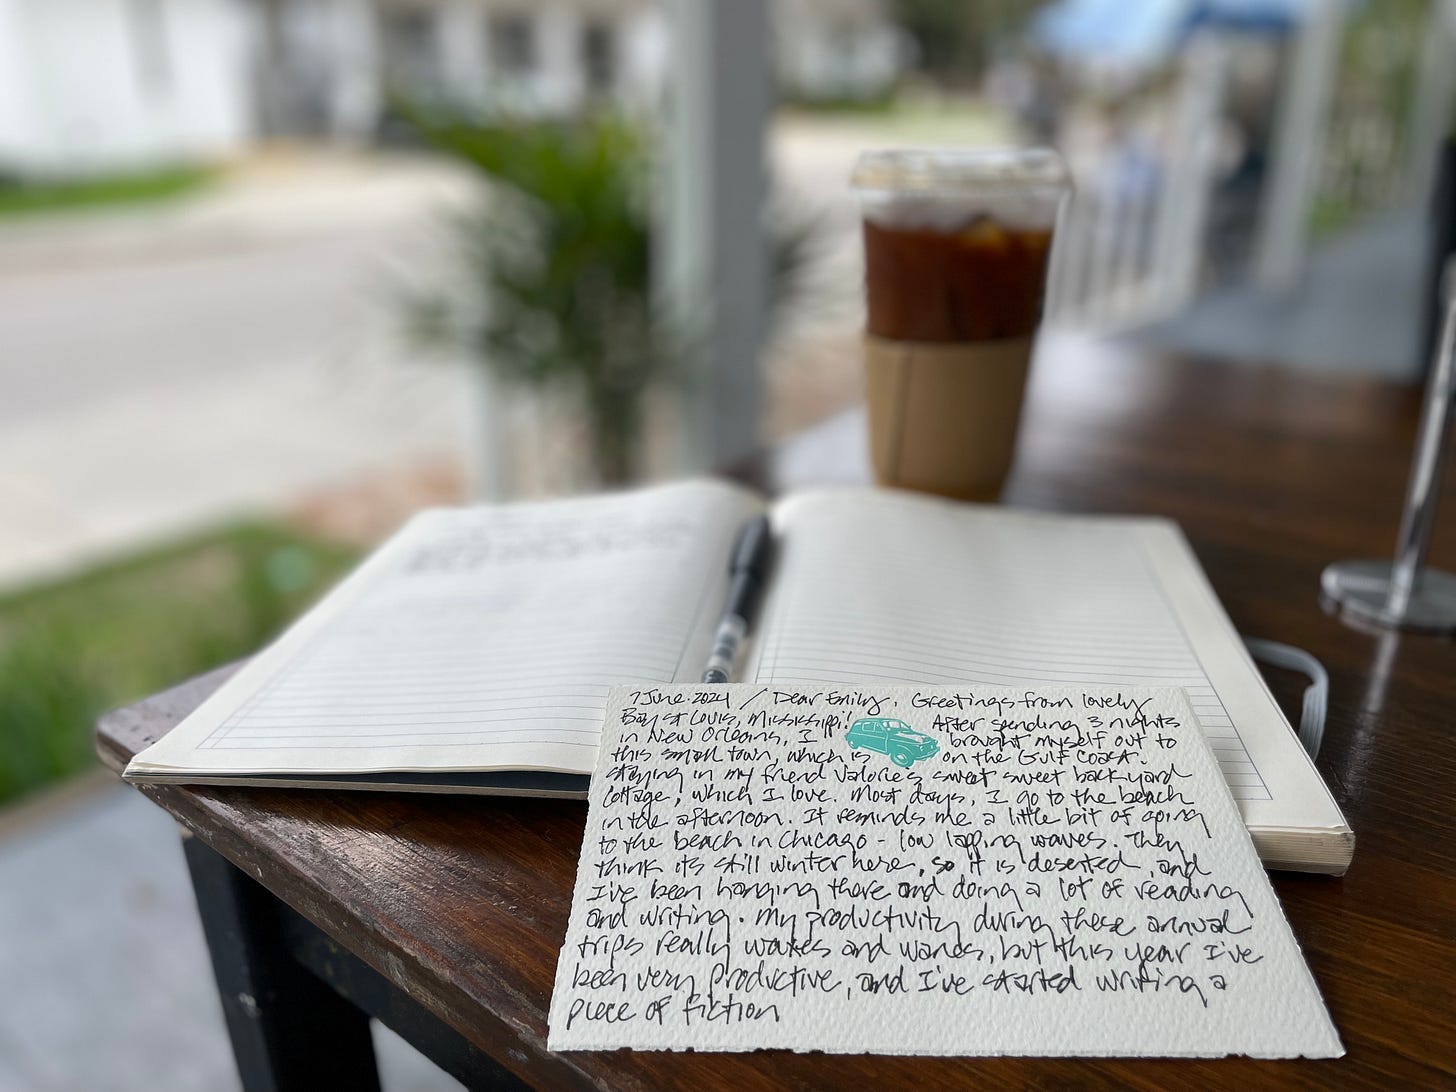 7 June. 2024 / Dear Emily, Greetings from lovely
Bay St Louis, Mississippi! After spending 3 nights
in New Orleans, I brought myself out to
this small town, which is on the Gulf Coast.
staying in my friend Valerie's sweet sweet backyard
cottage, which I love. Most days, I go to the beach
in the afternoon. It reminds me a little bit of going
to the beach in Chicago - low lapping waves. They
think its still winter here, so it is deserted, and
I've been hanging there and doing a lot of reading
and writing. My productivity during these annual
trips really waxes and wanes, but this year I've
been very productive, and I've started writing a
piece of fiction